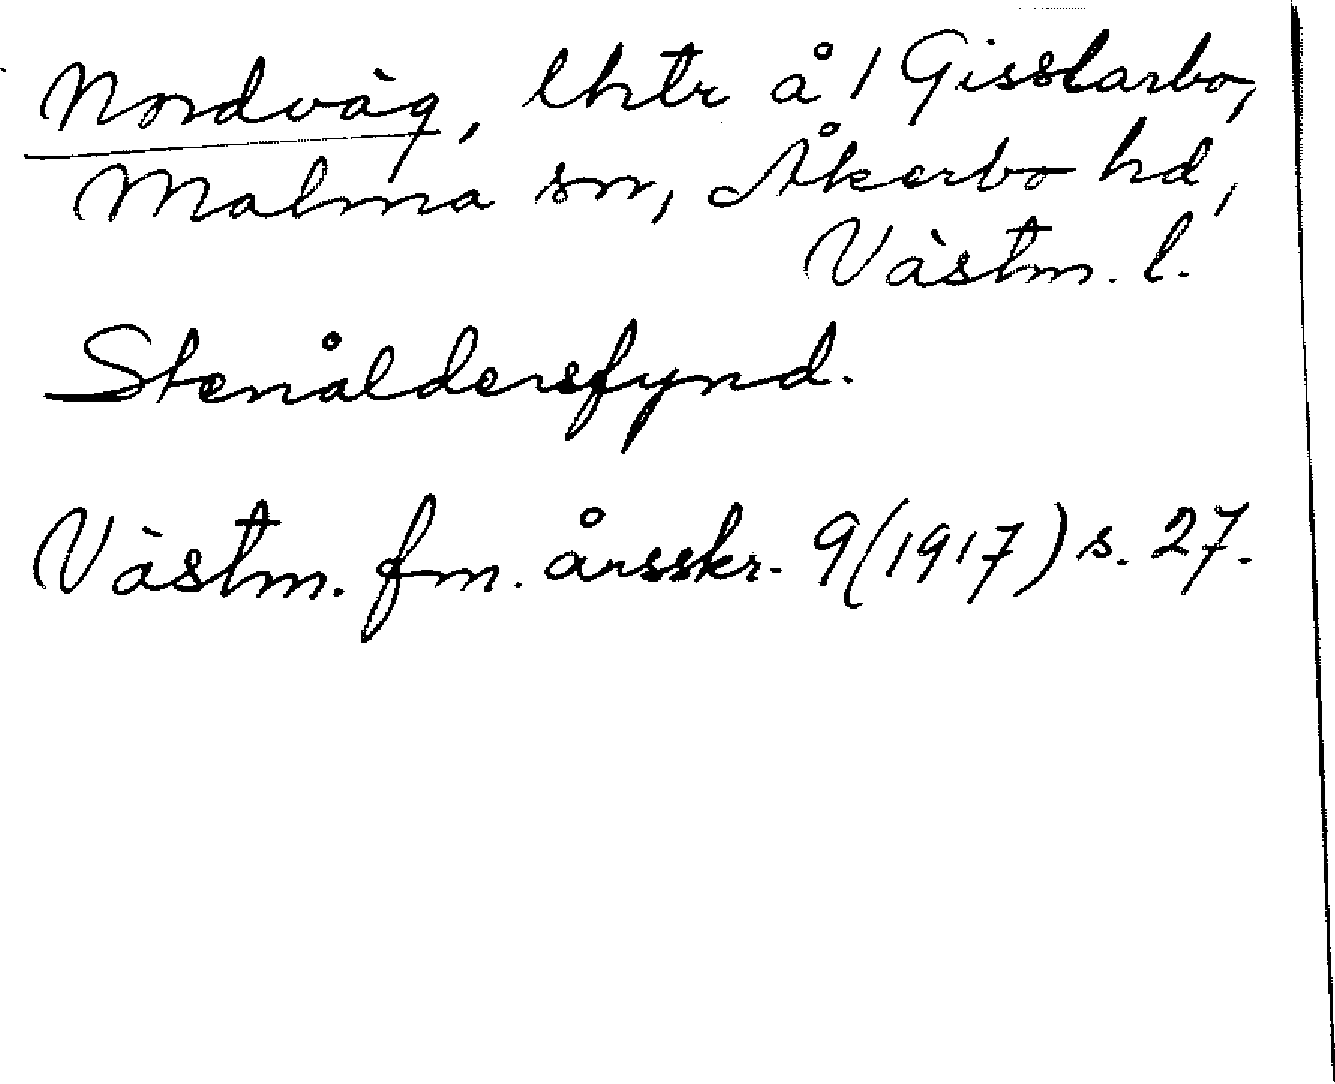 Nordväg, lhtr å 1 Gisslarbo,
Malma sn, Åkerbo hd,
Västm. l.
Stenåldersfynd.
Västm. fm. årsskr. 9 (1917) s. 27.